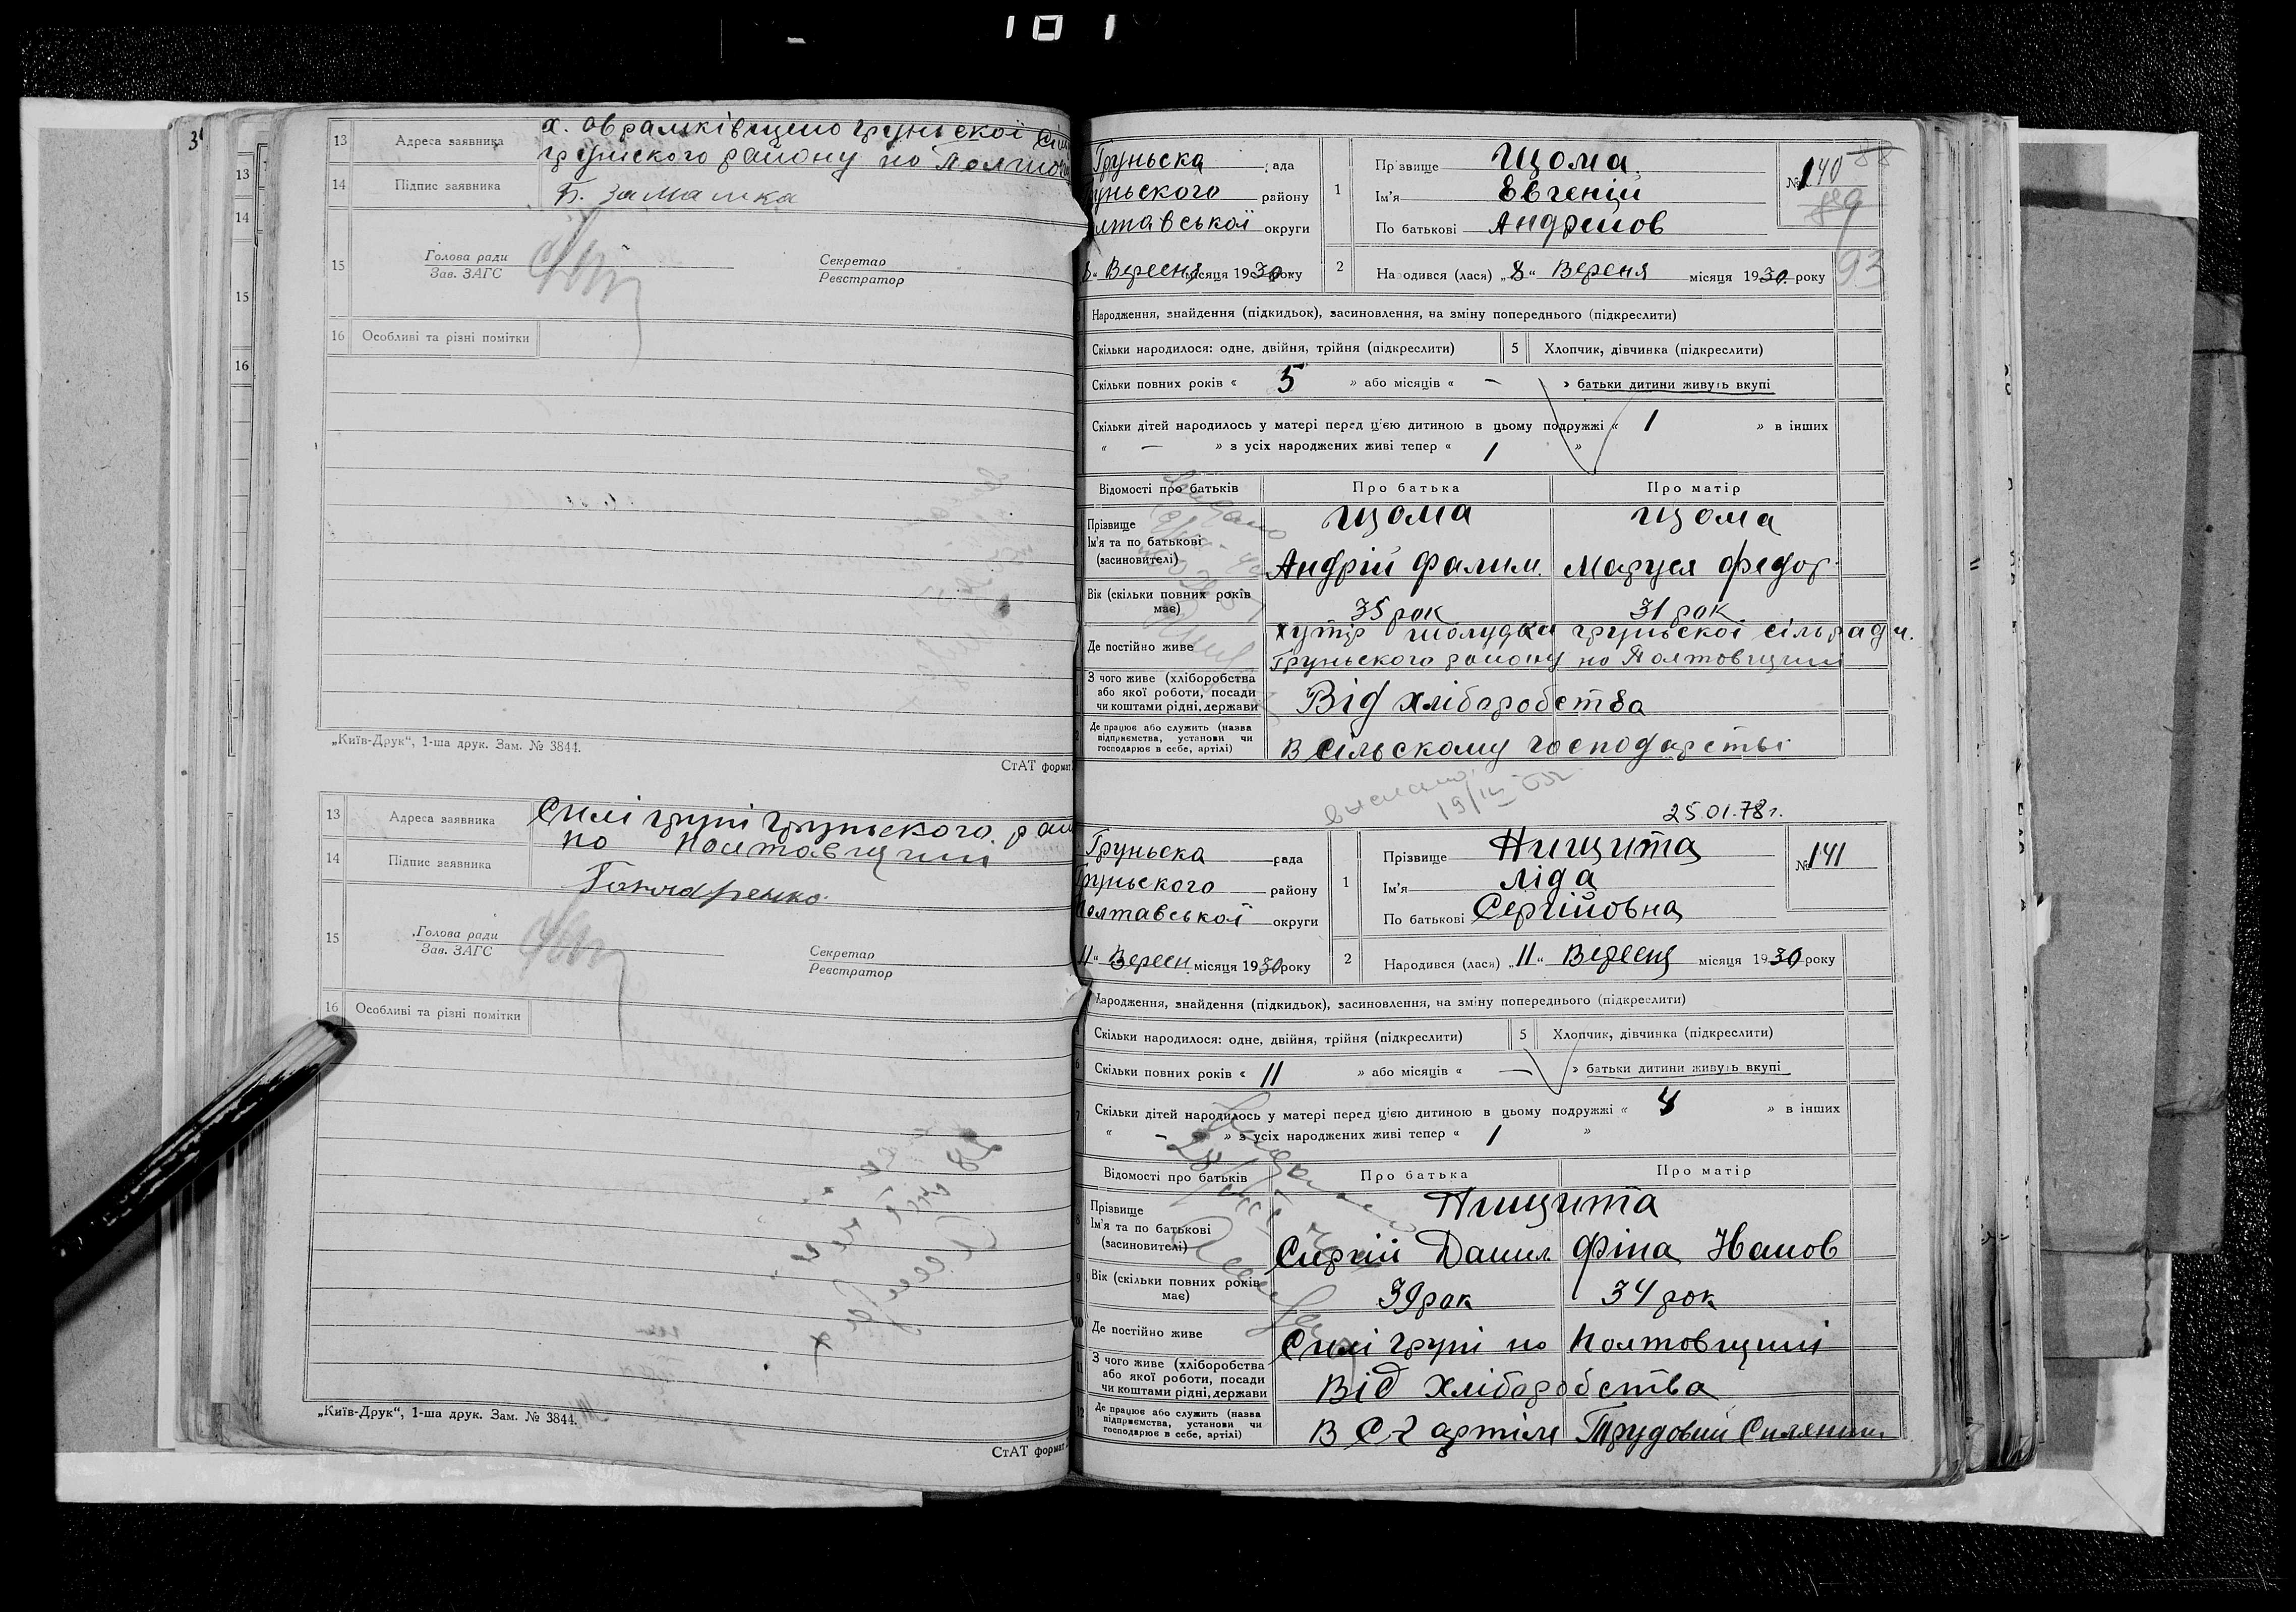 101
3
13 Адреса заявника х. Оврамківщено грунської
грунського району по
14 Підпис заявника Б. Замашка
15 Голова ради
Зав. ЗАГС
Секретар
Реєстратор
16 Особливі та різні помітки
„Київ-Друк“, 1-ша друк. Зам. № 3844.
СтАТ формат
13 Адреса заявника Силі груні грунського
по Полтавщині
14 Підпис заявника Гончаренко
15 Голова ради
Зав. ЗАГС
Секретар
Реєстратор
16 Особливі та різні помітки
„Київ-Друк“, 1-ша друк. Зам. № 3844.
СтАТ формат
13
14
15
16
Груньска рада
уньского району
лтавської округи
1 Прізвище Щома
Ім'я Евгеній
По батькові Андрейов
№ 140 88
89
93
8 “ Вересня місяця 1930 року
2 Народився (лася) „8“ Вереня місяця 1930 року
Народження, знайдення (підкидьок), засиновлення, на зміну попереднього (підкреслити)
Скільки народилося: одне, двійня, трійня (підкреслити) 5 Хлопчик, дівчинка (підкреслити)
Скільки повних років « 5 » або місяців « — » батьки дитини живуть вкупі
Скільки дітей народилось у матері перед цією дитиною в цьому подружжі « 1 » в інших
« — » з усіх народжених живі тепер « 1 »
Відомості про батьків Про батька Про матір
Прізвище Щома Щома
Ім'я та по батькові
(засиновителі) Андрій Фалим. Маруся Федор.
Вік (скільки повних років
має) 35 рок 31 рок
Де постійно живе хутір Шолудки грунської сільради.
Груньского району по Полтовщині
З чого живе (хліборобства
або якої роботи, посади
чи коштами рідні, держави Від хліборобства
Де працює або служить (назва
підприємства, установи чи
господарює в себе, артілі) В сільскому господарстві
выслано
25.01.78г.
Груньска рада
Груньского району
Полтавської округи
1 Прізвище Нищита
Ім'я Ліда
По батькові Сергійовна
№ 141
11 “ Вересн місяця 1930 року
2 Народився (лася) „11“ Вересня місяця 1930 року
Народження, знайдення (підкидьок), засиновлення, на зміну попереднього (підкреслити)
Скільки народилося: одне, двійня, трійня (підкреслити) 5 Хлопчик, дівчинка (підкреслити)
6 Скільки повних років « 11 » або місяців « — » батьки дитини живуть вкупі
7 Скільки дітей народилось у матері перед цією дитиною в цьому подружжі « 4 » в інших
« — » з усіх народжених живі тепер « 1 »
Відомості про батьків Про батька Про матір
8 Прізвище Нищита
Ім'я та по батькові
(засиновителі) Сиргій Данил Фіна Иванов
9 Вік (скільки повних років
має) 39 рок 34 рок
10 Де постійно живе Силі груні по Полтовщині
11 З чого живе (хліборобства
або якої роботи, посади
чи коштами рідні, держави Від хліборобства
12 Де працює або служить (назва
підприємства, установи чи
господарює в себе, артілі) В С-г артіли Трудовий Силянин.